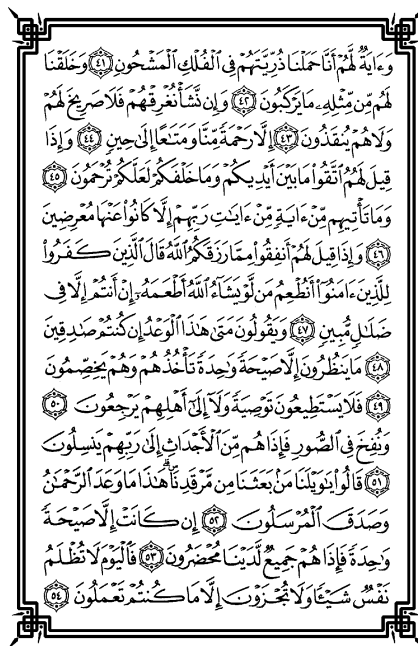 وَءَايَةٌ لَّهُمْ أَنَّا حَمَلْنَا ذُرِّيَّتَهُمْ فِي الْفُلْكِ الْمَشْحُونِ ٤١ وَخَلَقْنَا
لَهُم مِّن مِّثْلِهِۦ مَا يَرْكَبُونَ ٤٢ وَإِن نَّشَأْ نُغْرِقْهُمْ فَلَا صَرِيخَ لَهُمْ
وَلَا هُمْ يُنقَذُونَ ٤٣ إِلَّا رَحْمَةً مِّنَّا وَمَتَاعًا إِلَىٰ حِينٍ ٤٤ وَإِذَا
قِيلَ لَهُمُ اتَّقُوا مَا بَيْنَ أَيْدِيكُمْ وَمَا خَلْفَكُمْ لَعَلَّكُمْ تُرْحَمُونَ ٤٥
وَمَا تَأْتِيهِم مِّنْ ءَايَةٍ مِّنْ ءَايَاتِ رَبِّهِمْ إِلَّا كَانُوا عَنْهَا مُعْرِضِينَ
٤٦ وَإِذَا قِيلَ لَهُمْ أَنفِقُوا مِمَّا رَزَقَكُمُ اللَّهُ قَالَ الَّذِينَ كَفَرُوا
لِلَّذِينَ ءَامَنُوا أَنُطْعِمُ مَن لَّوْ يَشَاءُ اللَّهُ أَطْعَمَهُۥ إِنْ أَنتُمْ إِلَّا فِي
ضَلَالٍ مُّبِينٍ ٤٧ وَيَقُولُونَ مَتَىٰ هَٰذَا الْوَعْدُ إِن كُنتُمْ صَادِقِينَ
٤٨ مَا يَنظُرُونَ إِلَّا صَيْحَةً وَاحِدَةً تَأْخُذُهُمْ وَهُمْ يَخِصِّمُونَ
٤٩ فَلَا يَسْتَطِيعُونَ تَوْصِيَةً وَلَا إِلَىٰ أَهْلِهِمْ يَرْجِعُونَ ٥٠
وَنُفِخَ فِي الصُّورِ فَإِذَا هُم مِّنَ الْأَجْدَاثِ إِلَىٰ رَبِّهِمْ يَنسِلُونَ
٥١ قَالُوا يَاوَيْلَنَا مَن بَعَثَنَا مِن مَّرْقَدِنَا ۗ هَٰذَا مَا وَعَدَ الرَّحْمَٰنُ
وَصَدَقَ الْمُرْسَلُونَ ٥٢ إِن كَانَتْ إِلَّا صَيْحَةً
وَاحِدَةً فَإِذَا هُمْ جَمِيعٌ لَّدَيْنَا مُحْضَرُونَ ٥٣ فَالْيَوْمَ لَا تُظْلَمُ
نَفْسٌ شَيْئًا وَلَا تُجْزَوْنَ إِلَّا مَا كُنتُمْ تَعْمَلُونَ ٥٤